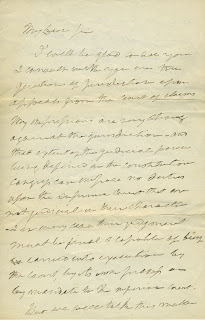 My Dear Sir
I will be glad to have you
& consult with the rgr on the
question of jurisdiction upon
appeals from the court of claims
My impressions are very strong
against the jurisdiction - and
that extent of the judicial power
being defined in the constitution
Congress can impose no duties
upon the Supreme Court that are
not judicial in their character
& in every case their judgment
must be final & capable of being
carried into execution by
the court by its own process or
by mandate to the inferior court.
we talk this matter